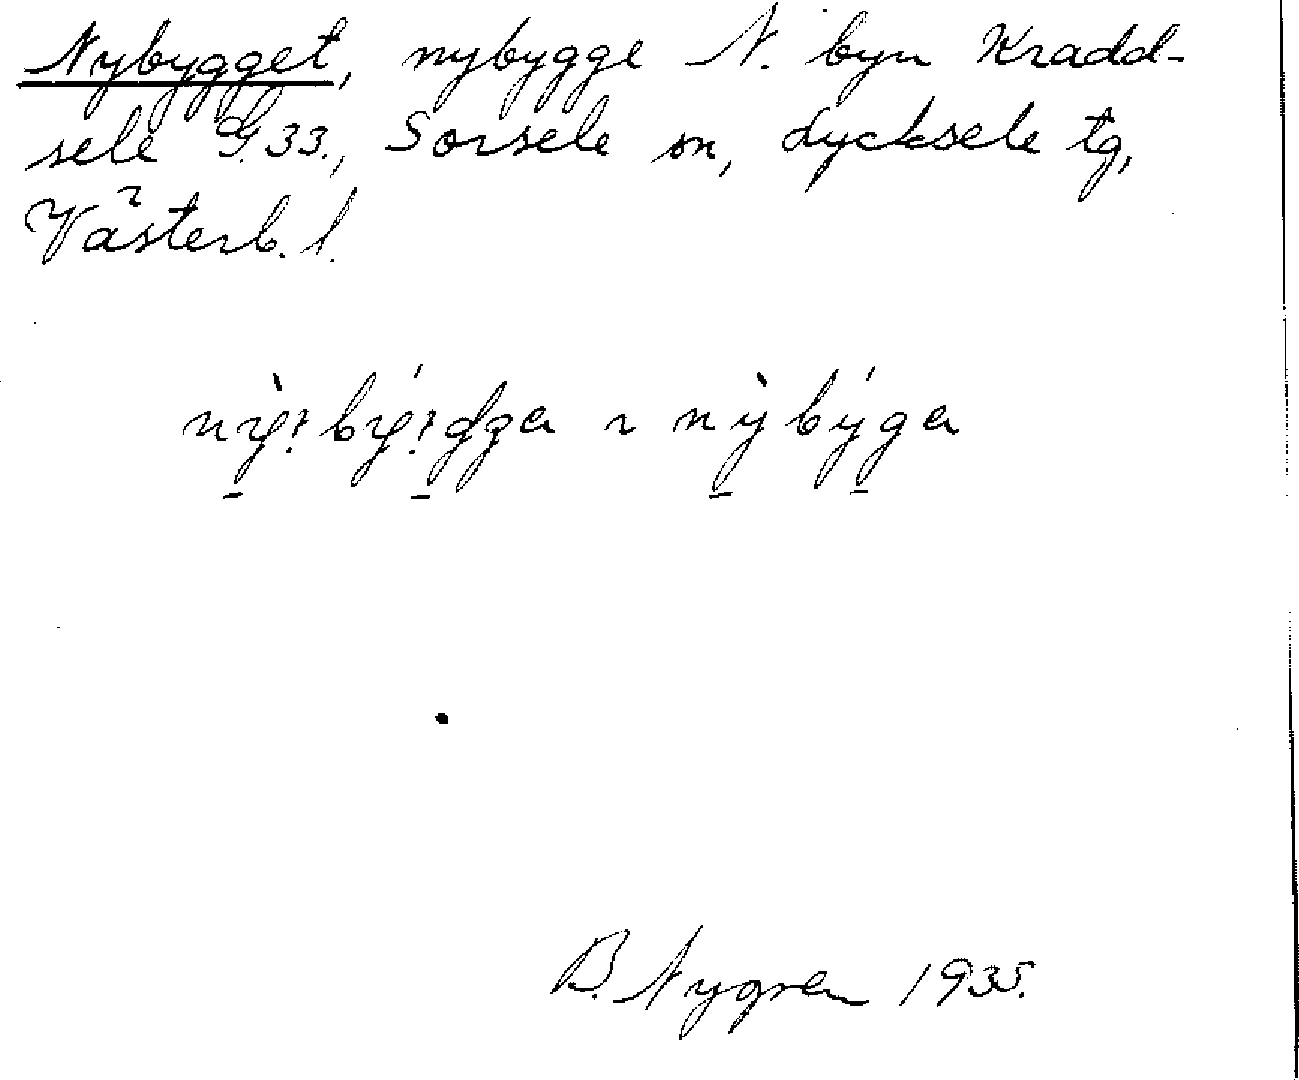 Nybygget, nybygge N. byn Kradd-
sele G. 33., Sorsele sn, Lycksele tg,
Västerb. l.
B. Nygren 1935.